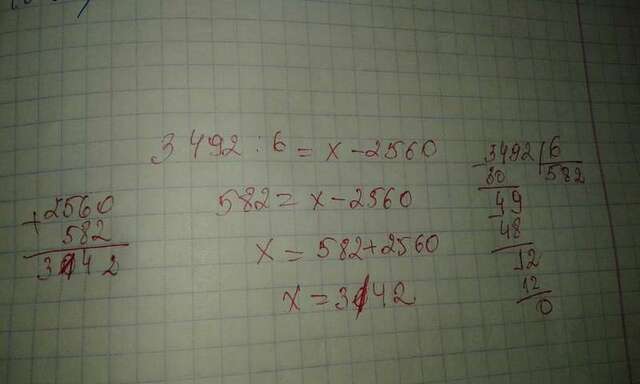 3492 : 6 = x - 2560
582 = x - 2560
x = 582 + 2560
x = 3142
2560
+ 582
3142
- 3492 | 6
30 582
49
48
12
12
0